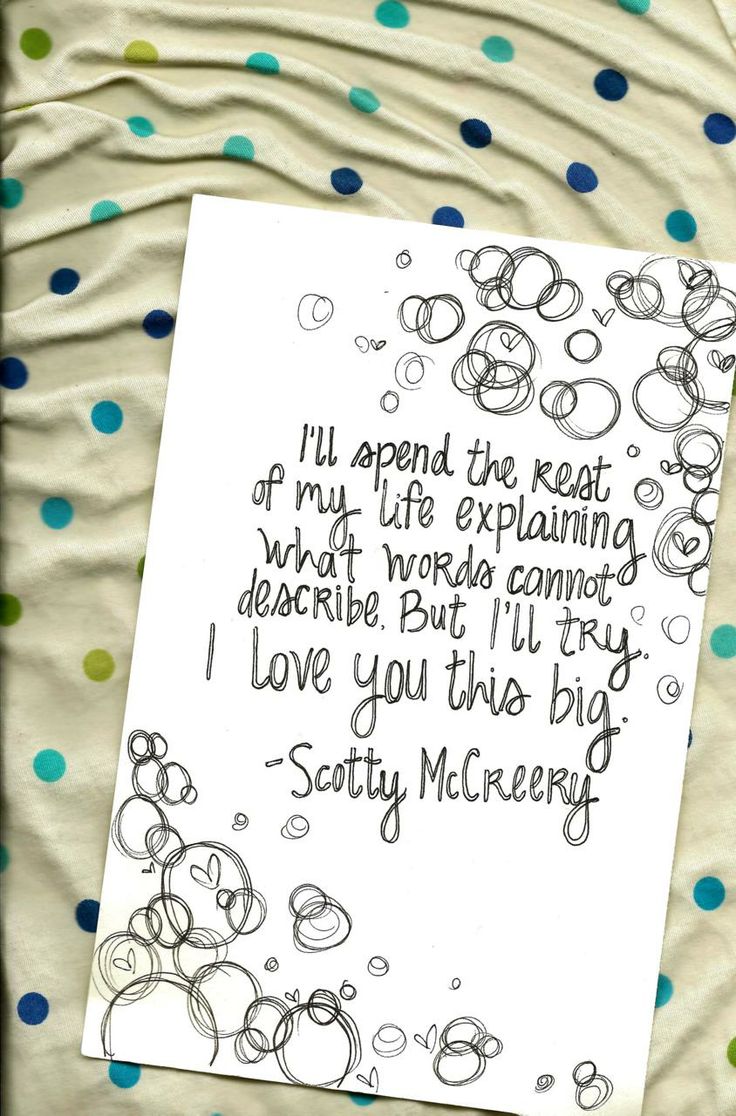 I'll spend the Rest
of my life explaining
what words cannot
describe. But I'll try.
I love you this big.
-Scotty McCreery